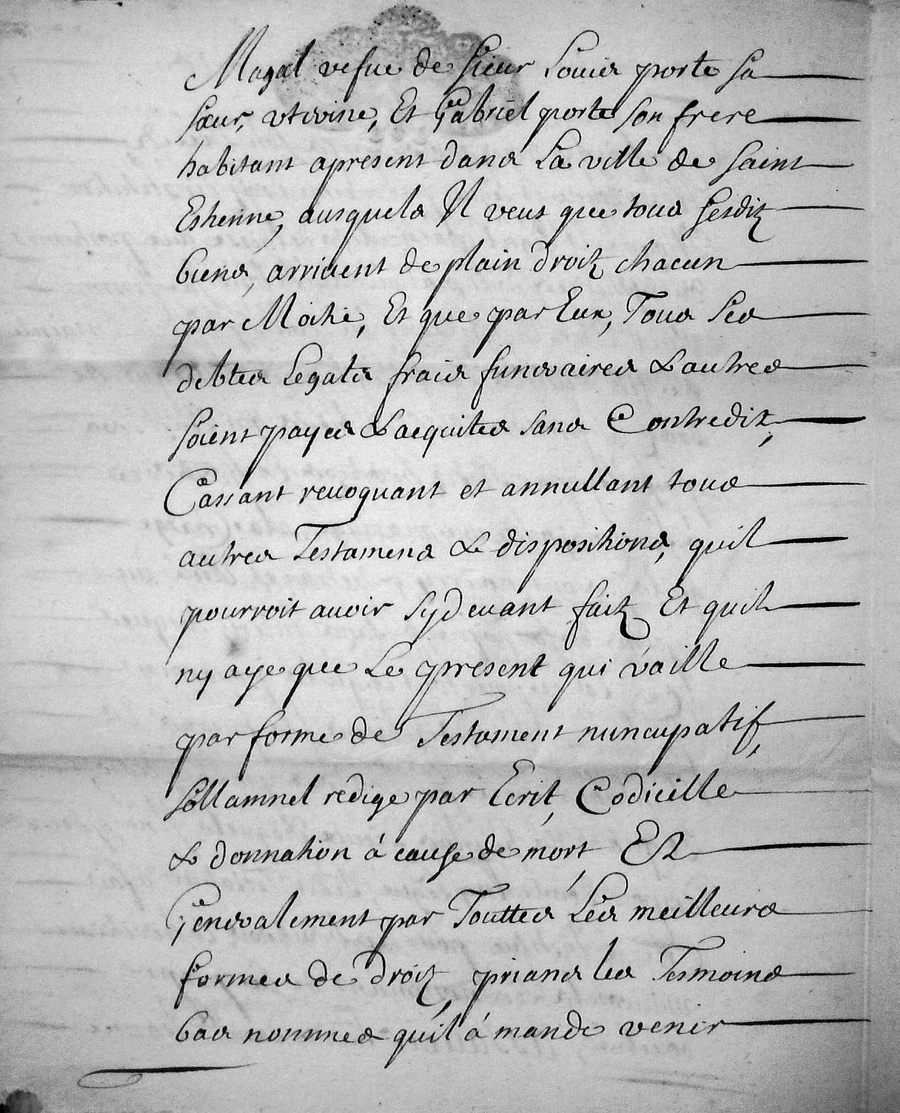 Magal vefue de Sieur Louis porte sa
sœur, vterine, Et Gabriel porte son frere
habitant apresent dans La ville de Saint
Estienne, ausquels Il veut que tous sesditz
biens, arriuent de plain droit chacun
par Moitié, Et que par Eux, Tous ses
debtes Legats frais funeraires & autres
soient payes & acquites sans Contredit,
Cassant reuoquant et annullant tous
autres Testamens & dispositions, quil
pourroit auoir sydeuant fait Et quil
ny aye que Le present qui vaille
par forme de Testament nuncupatif,
sollamnel redige par Ecrit, Codicille
& donnation á cause de mort, Et
Generalement par Touttes Les meilleurs
formes de droit, prians les Tesmoins
bas nommes quil á mande venir